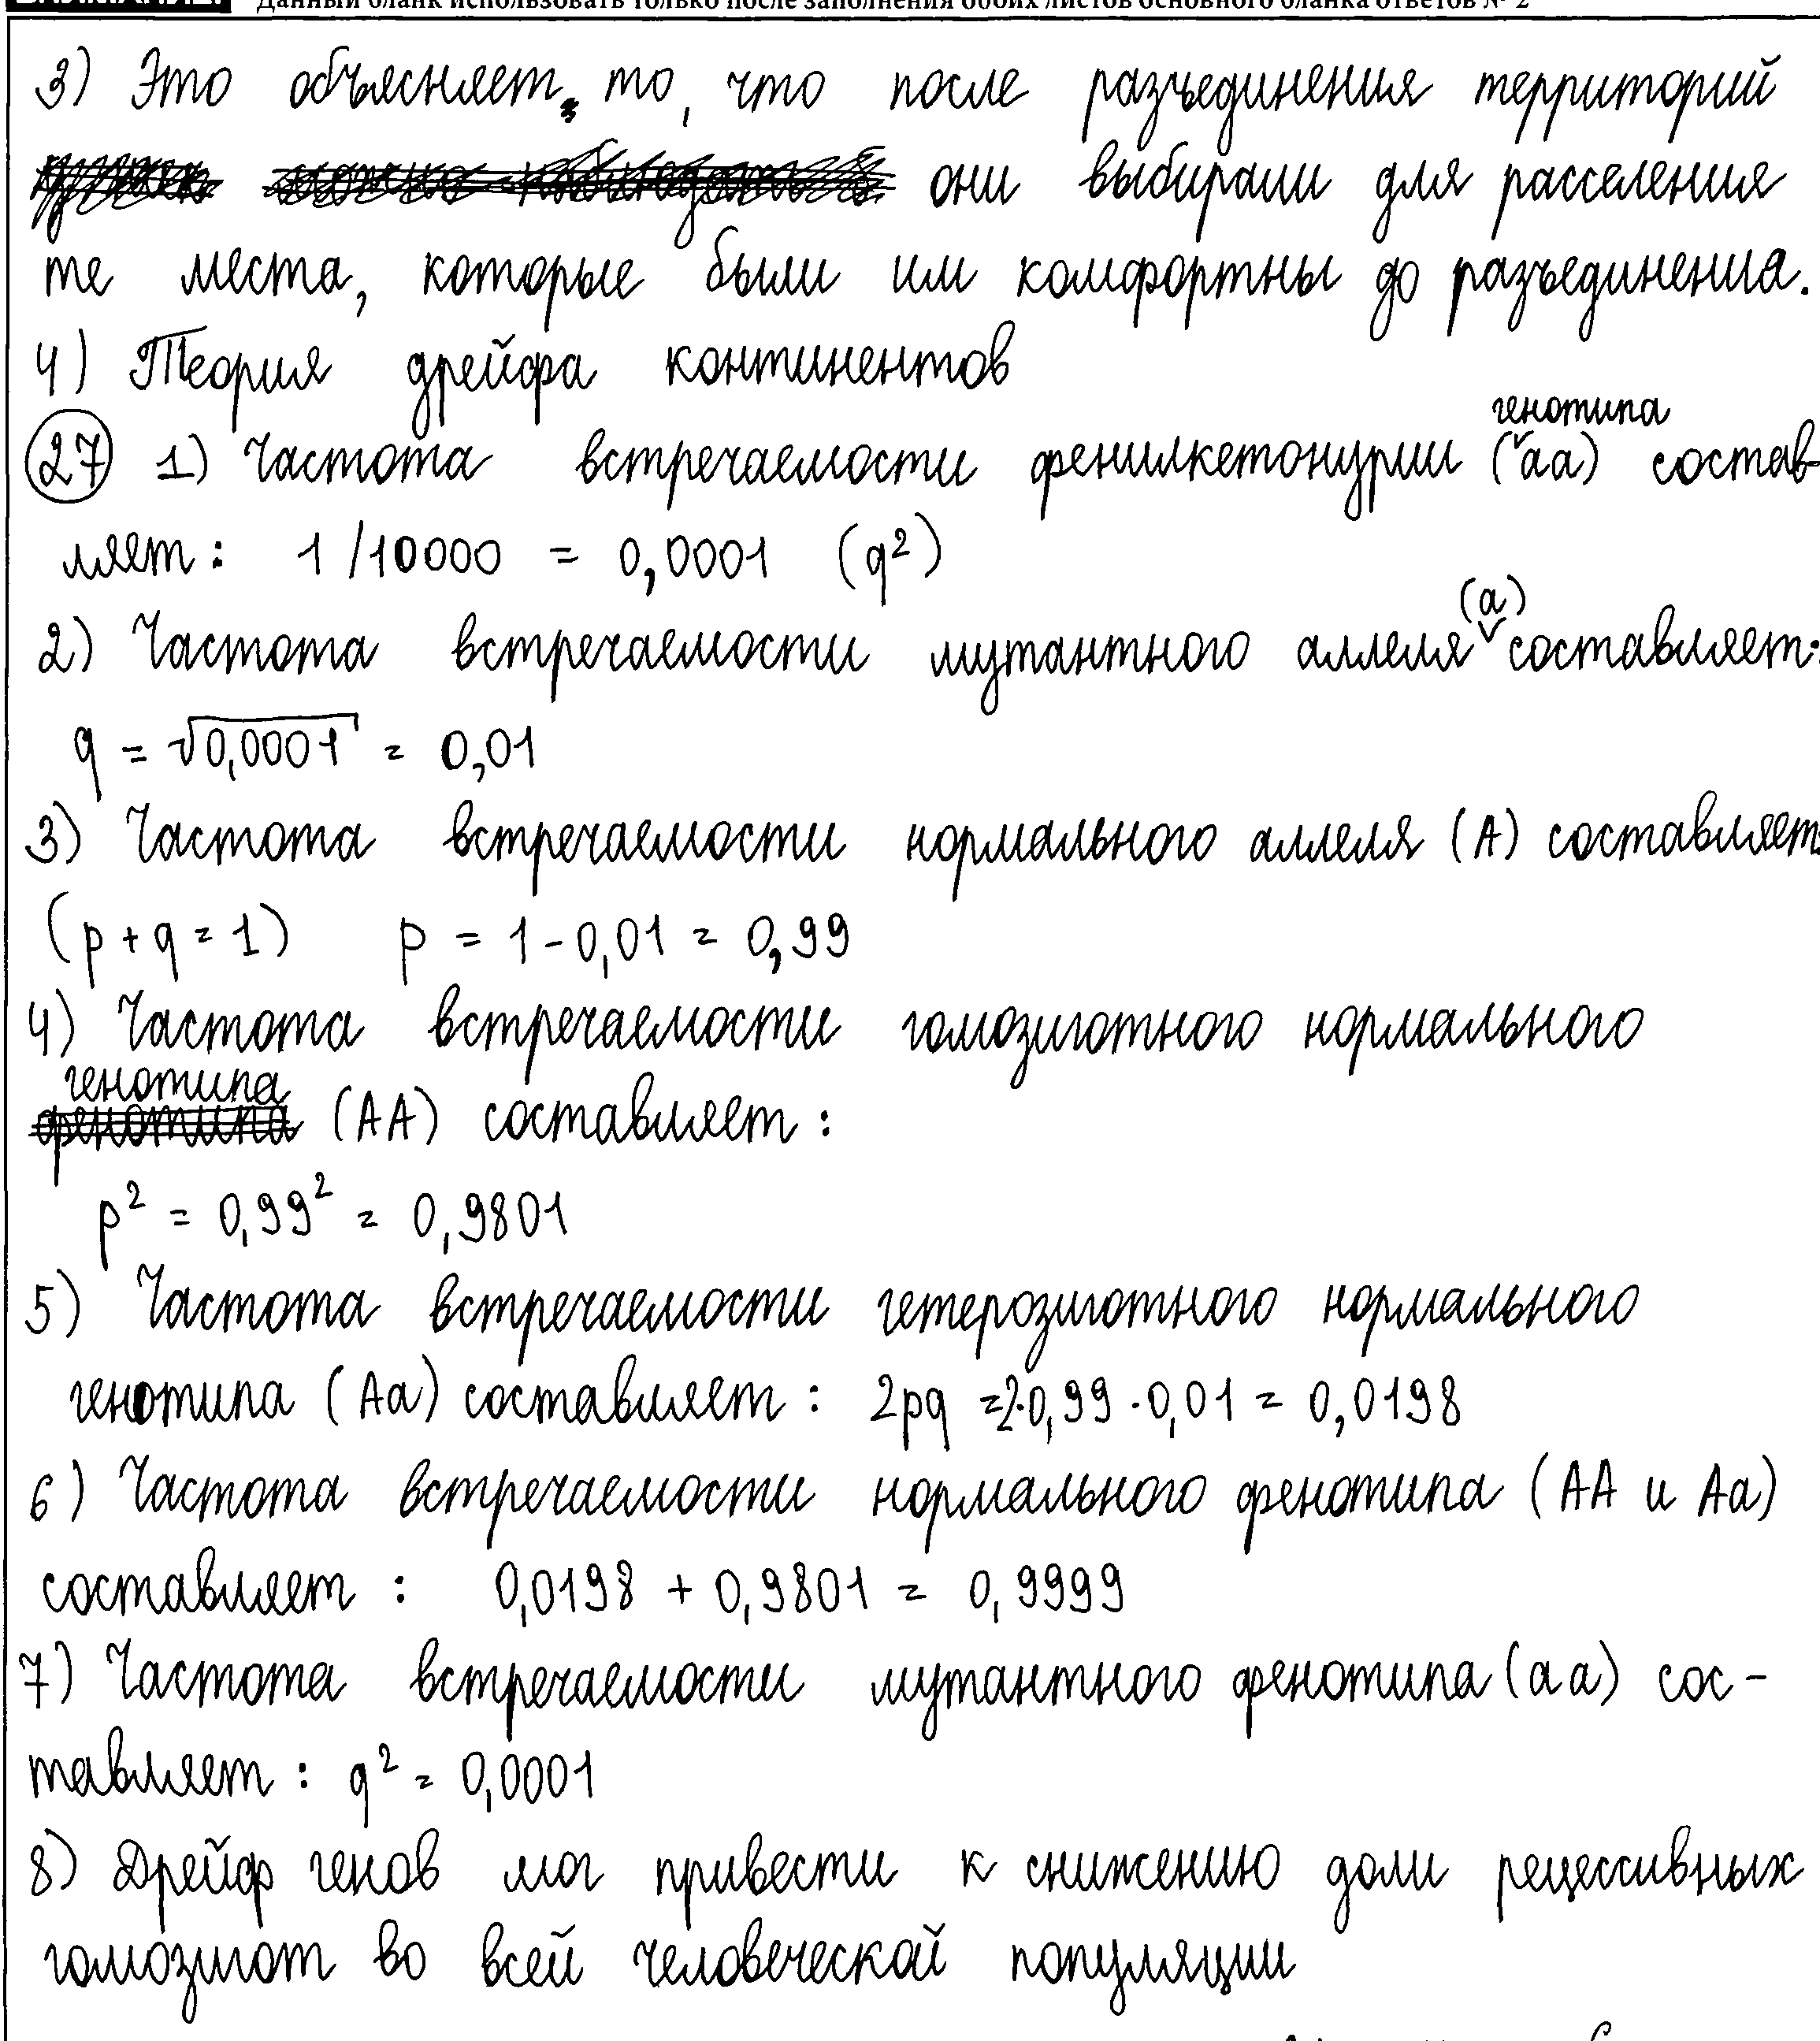 Данный бланк использовать только после заполнения обоих листов основного бланка ответов № 2
3) Это объясняет то, что после разъединения территорий
они выбирали для расселения
те места, которые были им комфортны до разъединения.
4) Теория дрейфа континентов
генотипа
27 1) Частота встречаемости фенилкетонурии (aa) состав-
ляет: 1/10000 = 0,0001 (q²)
(a)
2) Частота встречаемости мутантного аллеля составляет:
q = √0,0001 = 0,01
3) Частота встречаемости нормального аллеля (A) составляет:
(p + q = 1) p = 1 - 0,01 = 0,99
4) Частота встречаемости гомозиготного нормального
генотипа
фенотипа (AA) составляет:
p² = 0,99² = 0,9801
5) Частота встречаемости гетерозиготного нормального
генотипа (Aa) составляет: 2pq = 2·0,99·0,01 = 0,0198
6) Частота встречаемости нормального фенотипа (AA и Aa)
составляет: 0,0198 + 0,9801 = 0,9999
7) Частота встречаемости мутантного фенотипа (aa) сос-
тавляет: q² = 0,0001
8) Дрейф генов мог привести к снижению доли рецессивных
гомозигот во всей человеческой популяции